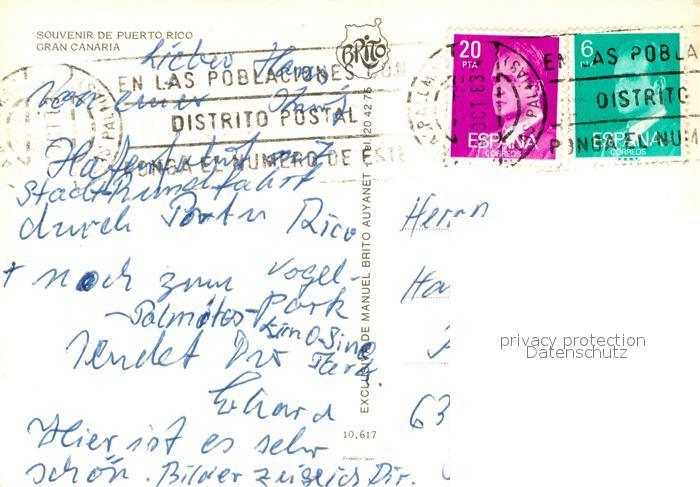 SOUVENIR DE PUERTO RICO
GRAN CANARIA
BRITO
EN LAS POBLACIONES CON
DISTRITO POSTAL
PONGA EL NUMERO DE ESTE
20 PTA
ESPAÑA
CORREOS
6
ESPAÑA
CORREOS
EN LAS POBLA
DISTRITO
PONGA EL NUM
Lieber Hans
von einer
Hafen
Stadtrundfahrt
durch Porto Rico
+ noch zum Vogel-
Palmitos-Park
sendet Dir
Ekhard
Hier ist es sehr
schön. Bilder zeig ich Dir.
EXCLUSIVAS DE MANUEL BRITO AUYANET - TEL. 20 42 75
10.617
Herrn
Ha
63
privacy protection
Datenschutz